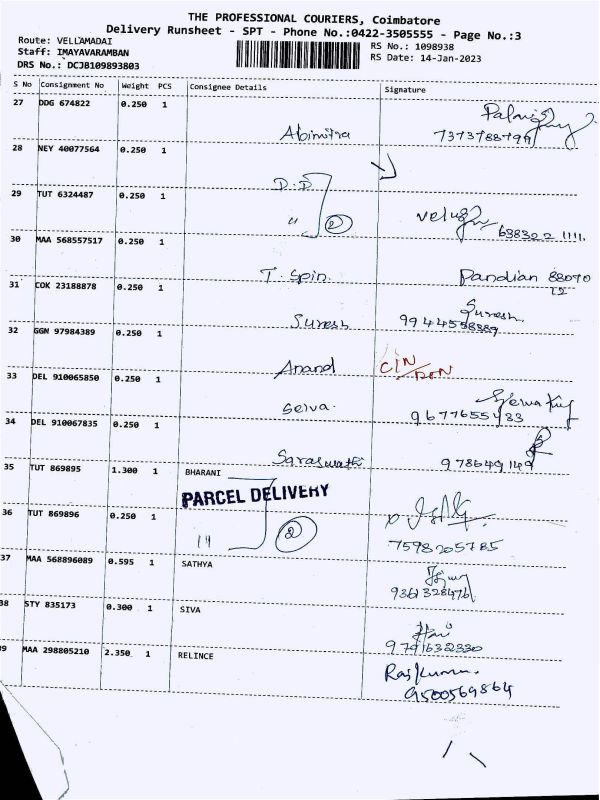 THE PROFESSIONAL COURIERS, Coimbatore
Delivery Runsheet - SPT - Phone No.:0422-3505555 - Page No.:3
Route: VELLAMADAI
Staff: IMAYAVARAMBAN
DRS No.: DCJB109893803
RS No.: 1098938
RS Date: 14-Jan-2023
S No Consignment No Weight PCS Consignee Details Signature
27 DDG 674822 0.250 1
Abimitra
28 NEY 40077564 0.250 1
D.D
29 TUT 6324487 0.250 1
" 2
30 MAA 568557517 0.250 1
T. Spin. Pandian 88070
31 COK 23188878 0.250 1
Suresh Suresh
32 GGN 97984389 0.250 1
Anand
33 DEL 910065850 0.250 1
Selva. 9677655483
34 DEL 910067835 0.250 1
Saraswathi 978649149
35 TUT 869895 1.300 1 BHARANI
PARCEL DELIVERY
36 TUT 869896 0.250 1
" 2
7598205785
37 MAA 568896089 0.595 1 SATHYA
9361328476
38 STY 835173 0.300 1 SIVA
9791632330
39 MAA 298805210 2.350 1 RELINCE
Rajkumar.
9500569864